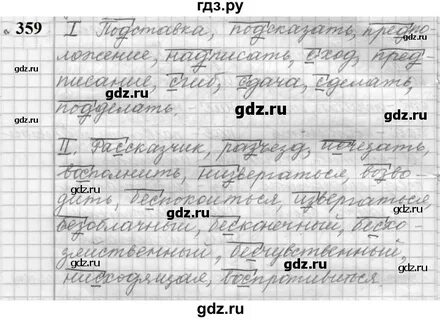 гдз.ру
359 I Подставка, подсказать, предпо-
ложение, надписать, сход, пред-
писание, сгиб, сдача, сделать,
подделать.
II. Рассказчик, разъезд, исчезать,
воспомнить, низвергаться, возво-
дить, беспокоиться, извергаться,
безоблачный, бесконечный, бесхо-
зяйственный, бесчувственный,
нисходящая, воспротивиться.
gdz.ru gdz.ru gdz.ru gdz.ru
gdz.ru gdz.ru gdz.ru
gdz.ru gdz.ru gdz.ru gdz.ru